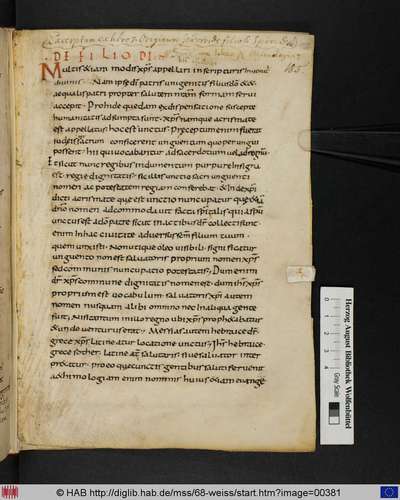 DE FILIO DI
Multis etiam modis xps appellari in scripturis invenitur
divinis. Nam ipse di patris unigenitus filius cum esset
aequalis patri propter salutem nram formam servi
accepit. Proinde quedam ex dispensatione suscepte
humanitatis adsumpta sunt. xps namque a crismate
est appellatus, hoc est unctus. Preceptum enim fuerat
iudeis ut sacrum conficerent unguentum quo perungui
possent hi qui vocabantur ad sacerdotium vel ad regnum
Et sicut nunc regibus indumentum purpure insigne
est regie dignitatis, sic illis unctio sacri unguenti
nomen ac potestatem regiam conferebat, et inde xpi
dicti a crismate que est unctio nuncupatur
dno nomen adcommodavit facta spiritalis quia spu
unctus est a do patre sicut in actibus dr collecti sunt
enim in hac civitate adversus scm filium tuum
quem unxisti. Non utique oleo visibili sign
unguento non est salvatoris proprium nomen xps
sed communis nuncupatio potestatis. Dum enim
dr xps commune dignitatis nomen est, dum ihs xps
proprium est vocabulum salvatoris xpi autem
nomen nusquam alibi omnino nec in aliqua gente
fuit, nisi tantum in illo regno ubi xps prophetabatur
et unde venturus erat. Messias autem hebraice dr
grece xps latine a unctus. Ihs hebraice
grece sother latine a salutaris sive salvator inter
pretatur, pro eo quod cunctis gentibus salutifer venit
aethimologiam enim nominis huius etiam evange
Herzog August Bibliothek Wolfenbüttel
© HAB http://diglib.hab.de/mss/68-weiss/start.htm?image=00381